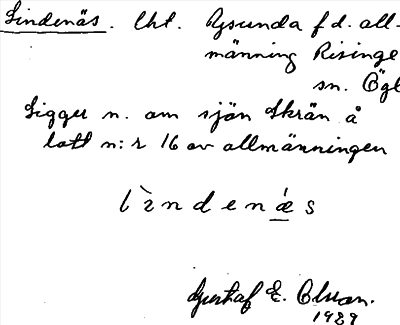 Lindenäs. Lht. Rysunda f.d. all-
männing Risinge
sn. Ögl
Ligger n. om sjön Skrän å
lott n:r 16 av allmänningen
lìndenæ´s
Gustaf E. Olsson.
1929